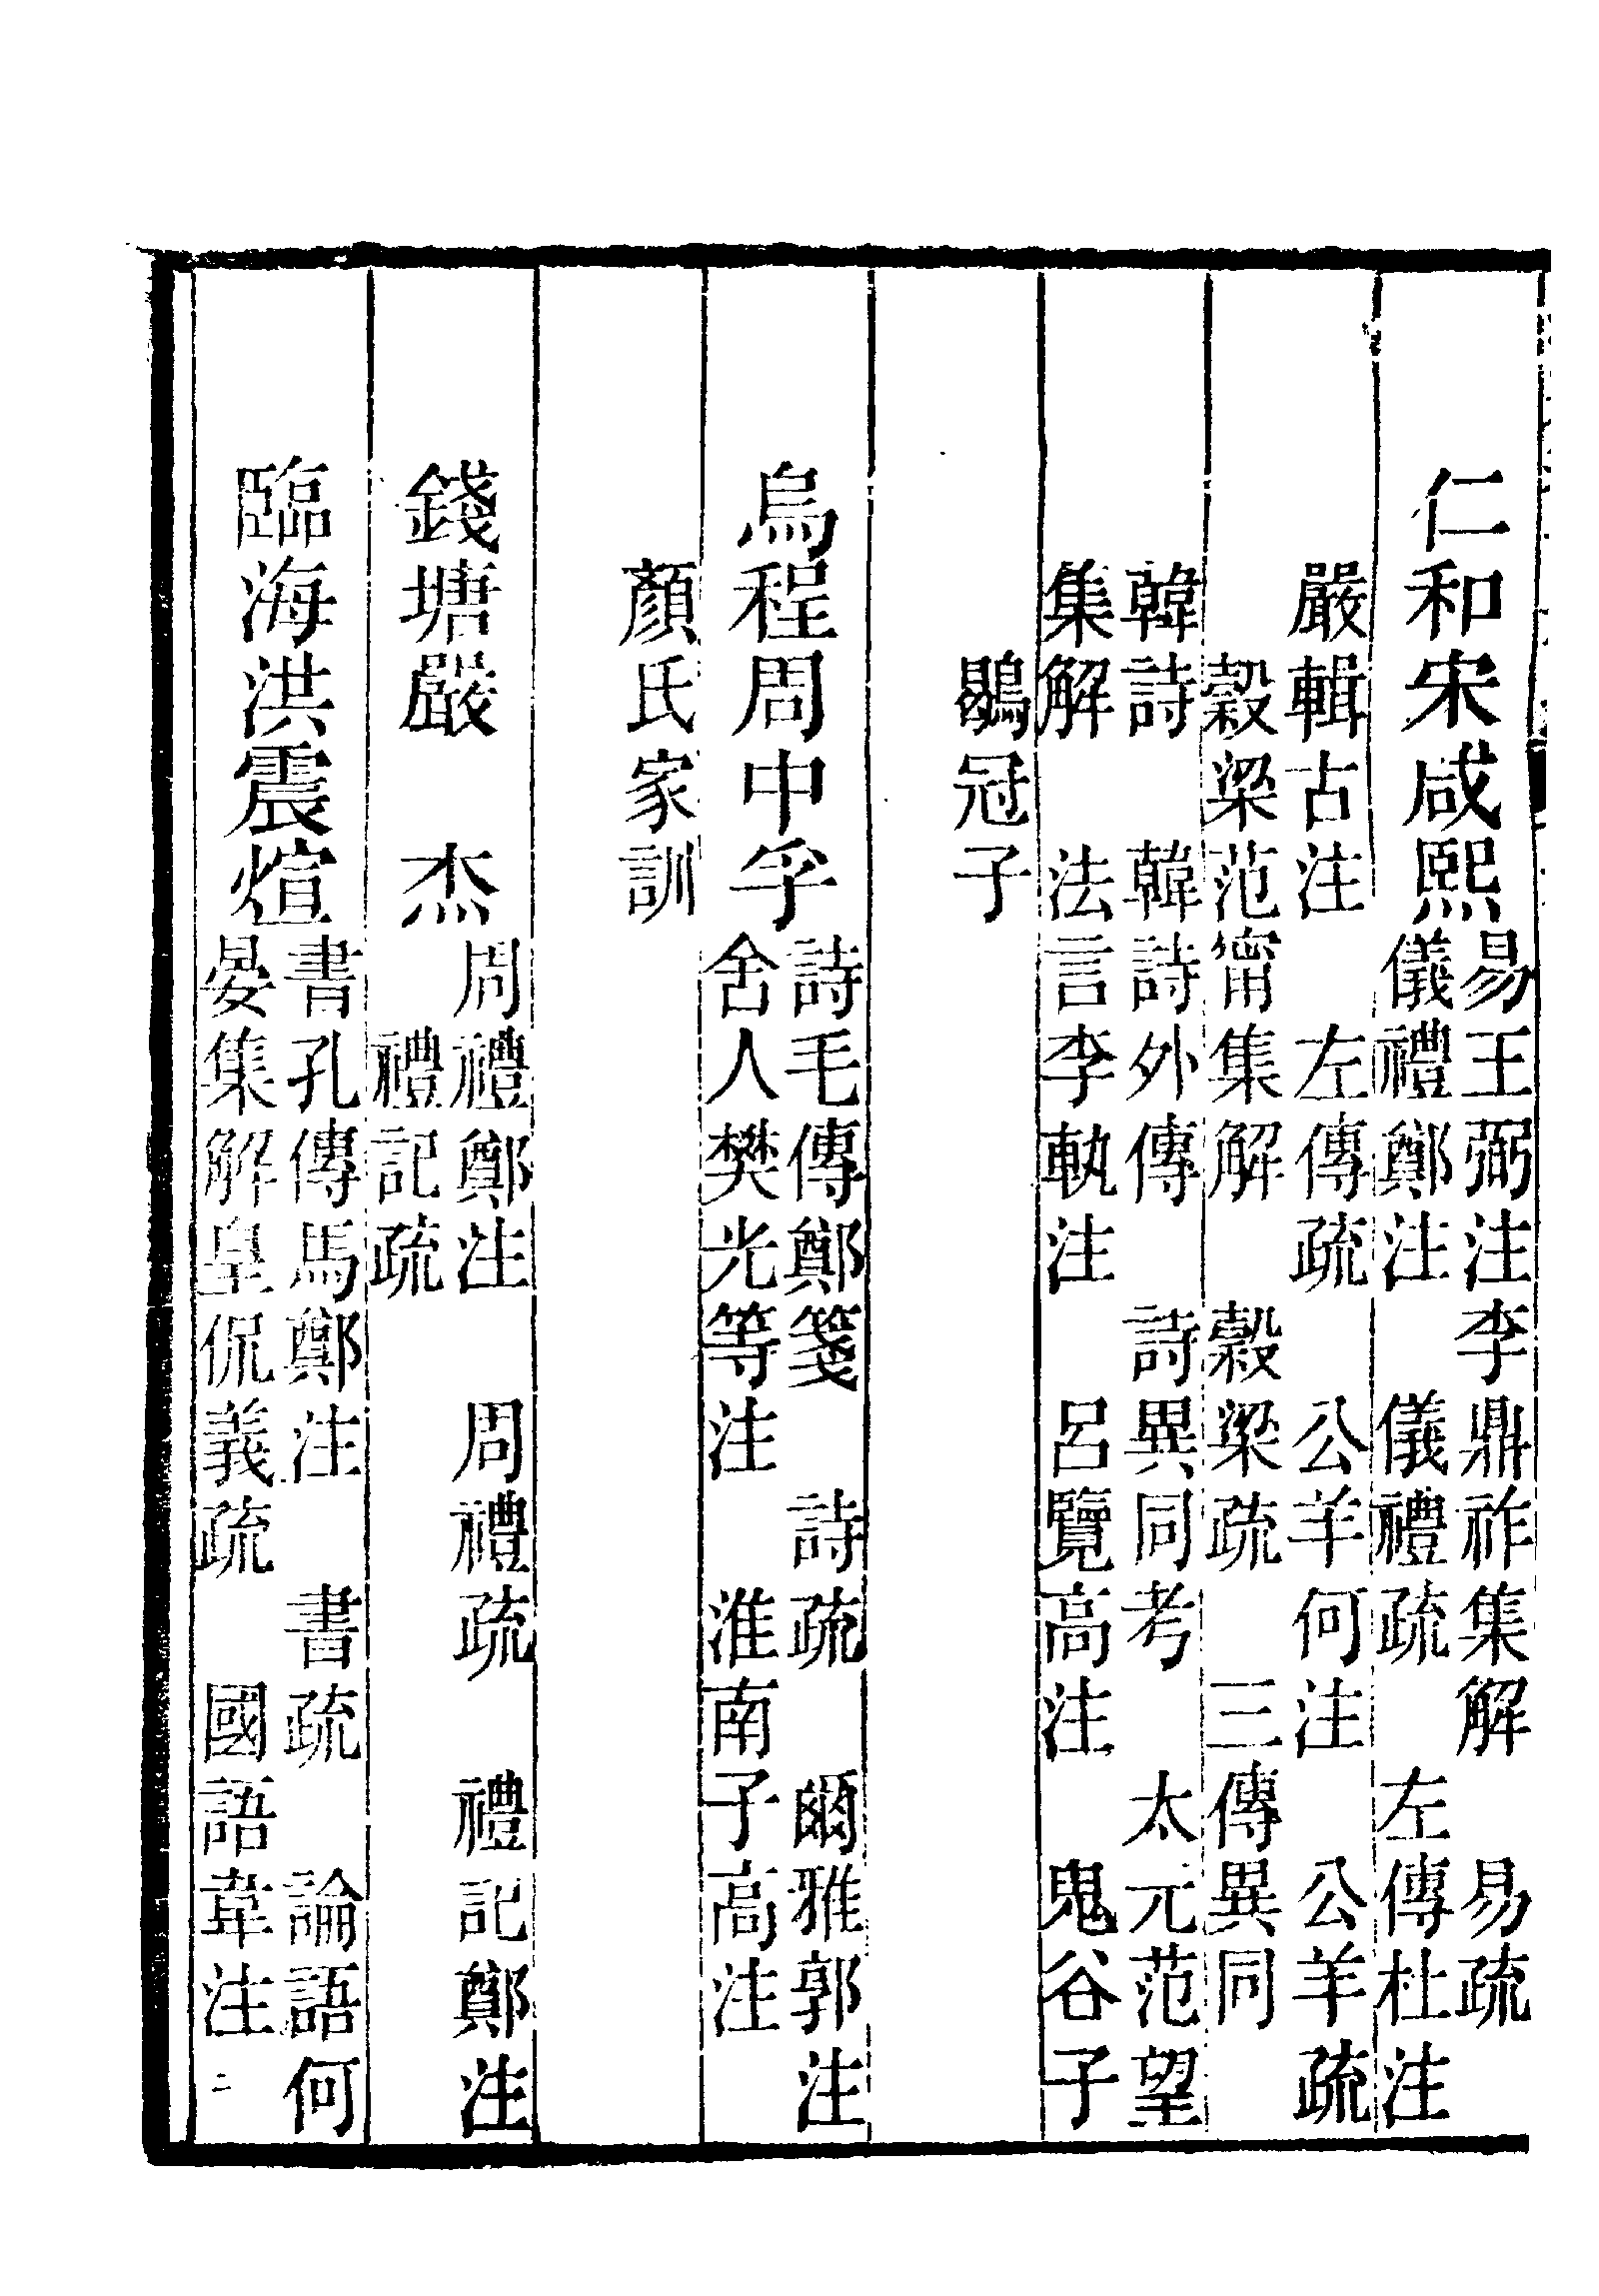 仁和宋咸熙
易王弼注李鼎祚集解　易疏
儀禮鄭注　儀禮疏　左傳杜注
嚴輯古注　左傳疏　公羊何注　公羊疏
穀梁范甯集解　穀梁疏　三傳異同
韓詩　韓詩外傳　詩異同考　太元范望
集解　法言李軌注　呂覽高注　鬼谷子
鶡冠子
烏程周中孚
詩毛傳鄭箋　詩疏　爾雅郭注
舍人樊光等注　淮南子高注
顏氏家訓
錢塘嚴　杰
周禮鄭注　周禮疏　禮記鄭注
禮記疏
臨海洪震煊
書孔傳馬鄭注　書疏　論語何
晏集解皇侃義疏　國語韋注
二